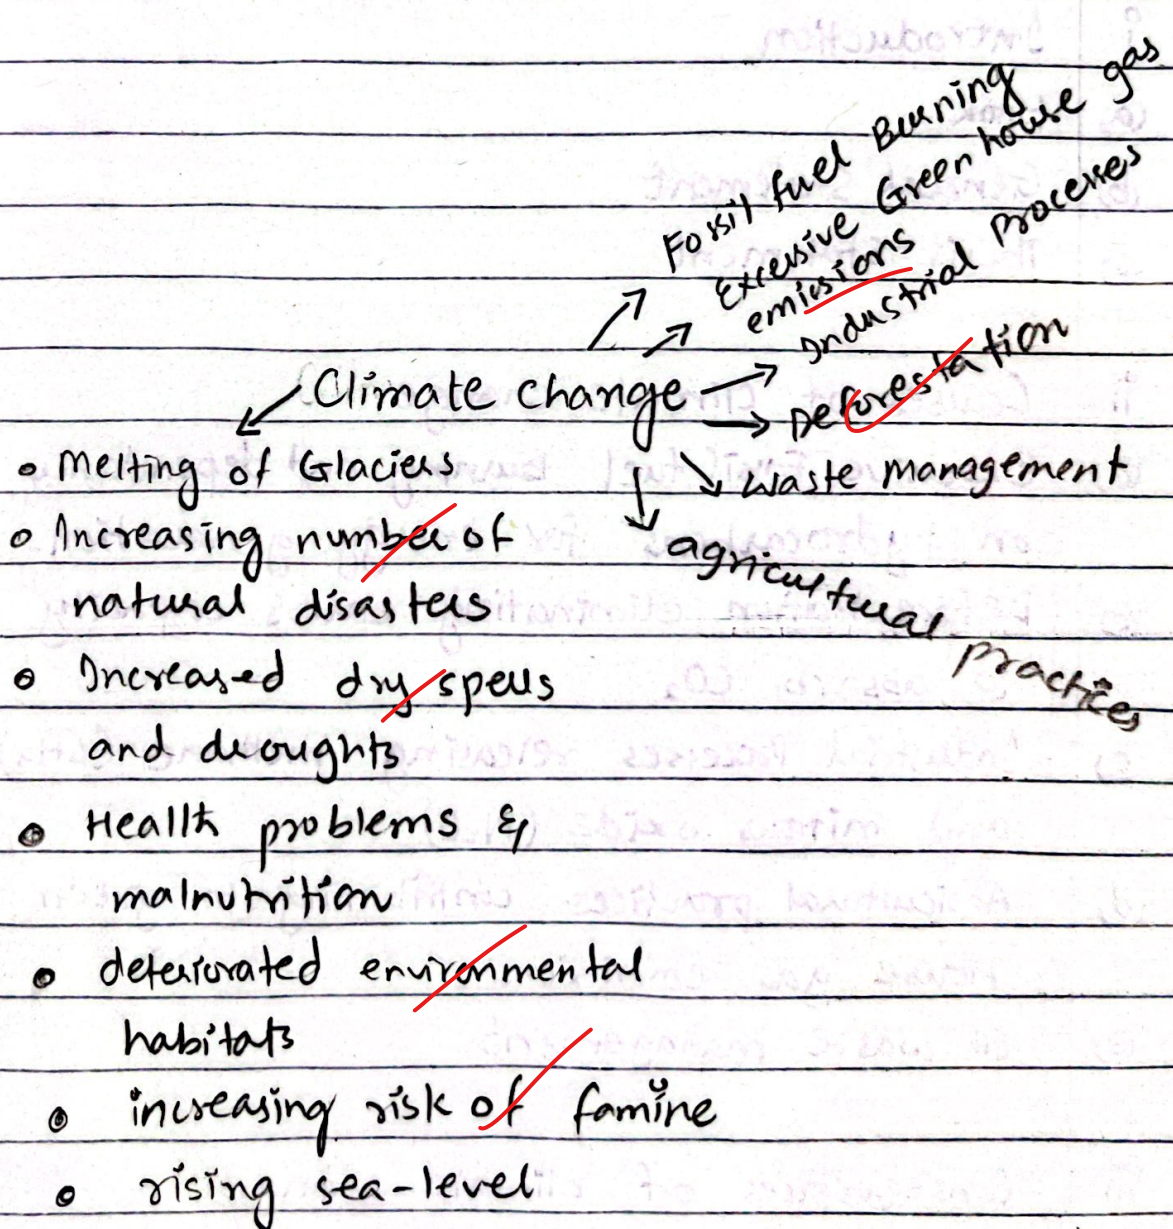 Fossil fuel Burning
Excessive Green house gas
emissions
Industrial Processes
Climate change
Deforestation
Waste management
agricultural practices
• Melting of Glaciers
• Increasing number of
natural disasters
• Increased dry spells
and droughts
• Health problems &
malnutrition
• deteriorated environmental
habitats
• increasing risk of famine
• rising sea-level